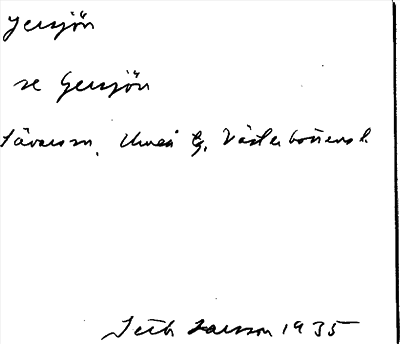 Jersjön
se Gersjön
Sävar sn, Umeå lg, Västerbottens l.
Seth Larsson 1935